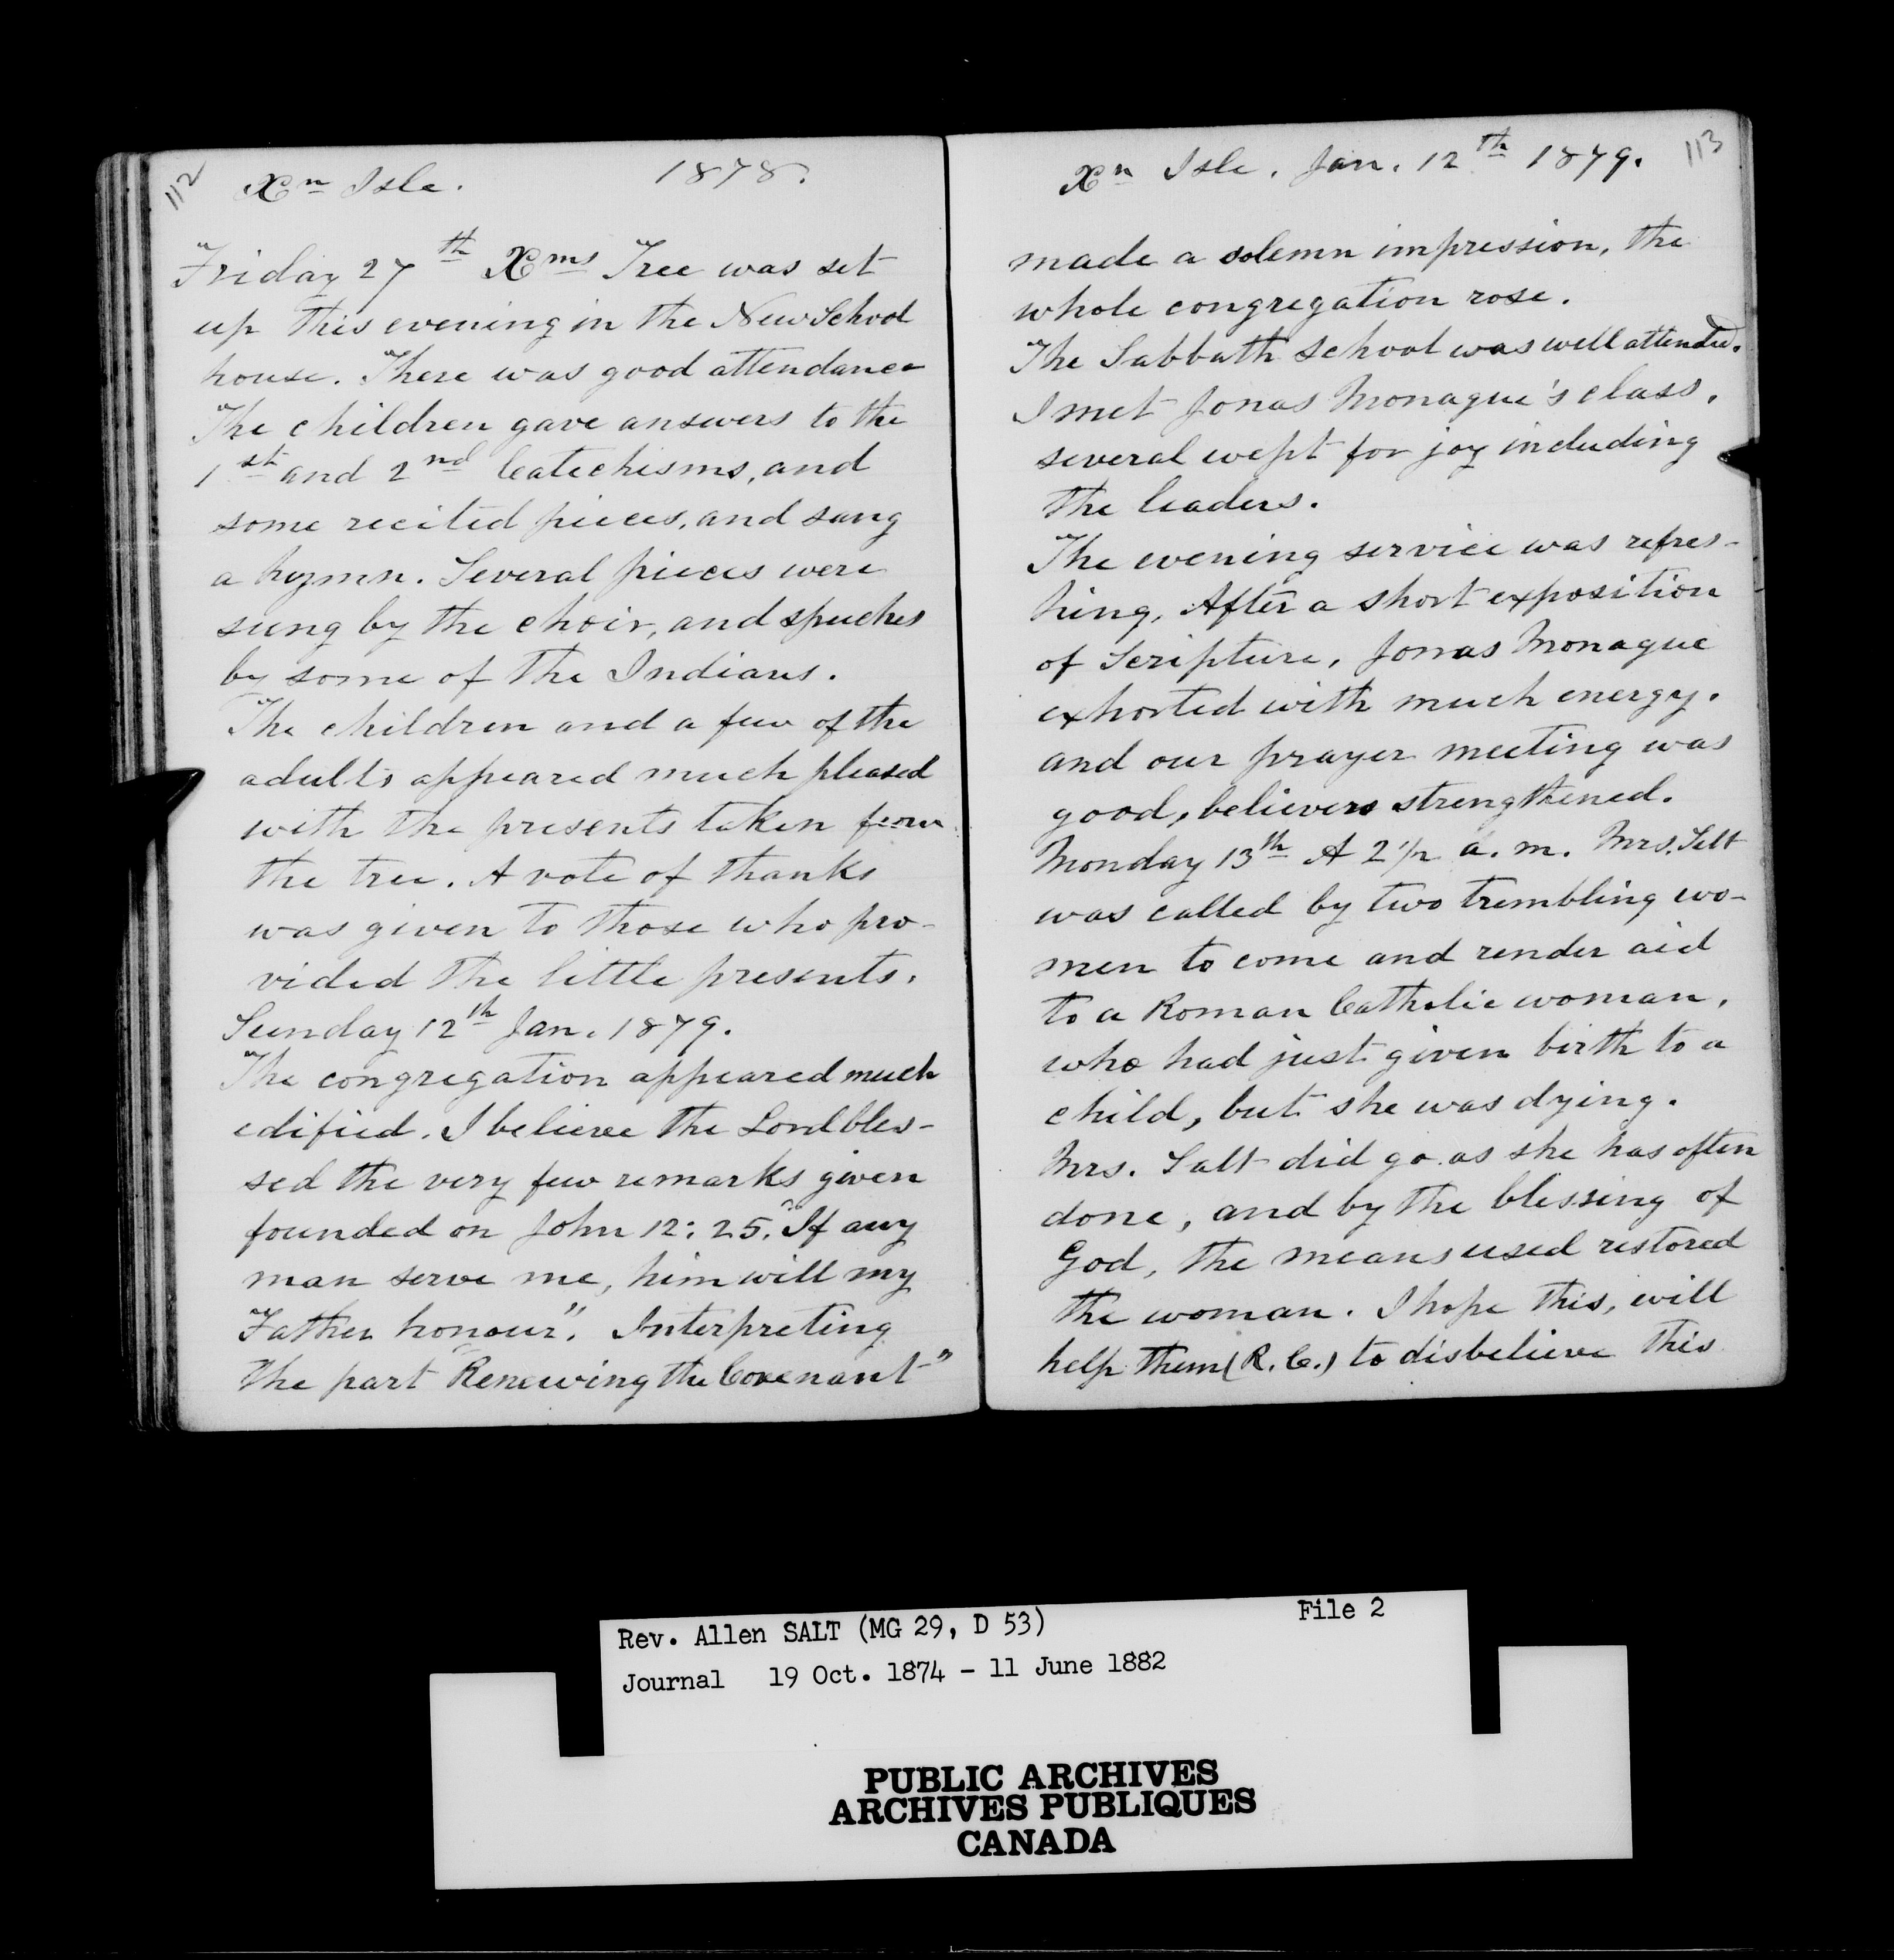 112
Xn Isle. 1878.
Friday 27th Xms Tree was set
up this evening in the New School
house. There was good attendance
The children gave answers to the
1st and 2nd Catechisms, and
some recited pieces, and sang
a hymn. Several pieces were
sung by the choir, and speeches
by some of the Indians.
The children and a few of the
adults appeared much pleased
with the presents taken from
the tree. A vote of thanks
was given to those who pro-
vided the little presents.
Sunday 12th Jan. 1879.
The congregation appeared much
edified. I believe the Lord bles-
sed the very few remarks given
founded on John 12: 25. "If any
man serve me, him will my
Father honour". Interpreting
the part "Renewing the Covenant"
113
Xn Isle. Jan. 12th 1879.
made a solemn impression, the
whole congregation rose.
The Sabbath school was well attended.
I met Jonas Monague's class,
several wept for joy including
the leaders.
The evening service was refres-
hing. After a short exposition
of Scripture, Jonas Monague
exhorted with much energy.
and our prayer meeting was
good, believers strengthened.
Monday 13th At 2 1/2 a. m. Mrs. Salt
was called by two trembling wo-
men to come and render aid
to a Roman Catholic woman,
who had just given birth to a
child, but she was dying.
Mrs. Salt did go as she has often
done, and by the blessing of
God, the means used restored
the woman. I hope this, will
help them (R. C.) to disbelieve this
Rev. Allen SALT (MG 29, D 53) File 2
Journal 19 Oct. 1874 - 11 June 1882
PUBLIC ARCHIVES
ARCHIVES PUBLIQUES
CANADA